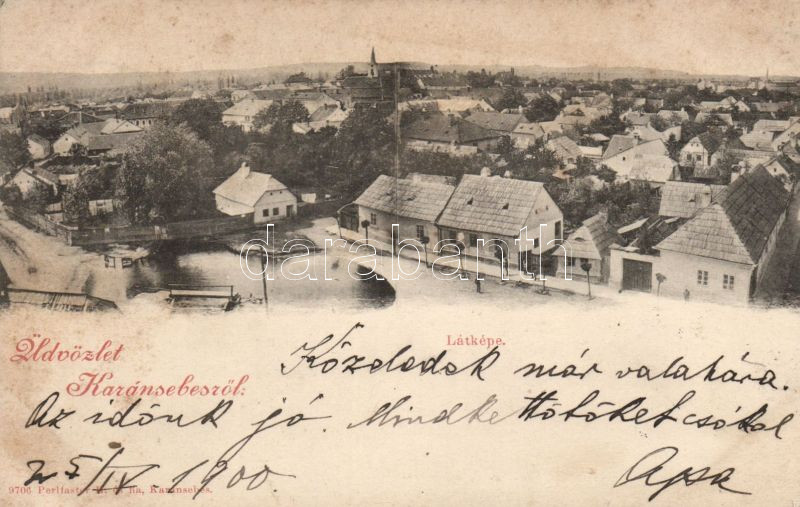 darabanth
Üdvözlet
Karánsebesről:
Látképe.
Közeledek már valahára.
Az időnk jó. Mindkettőtöket csókol
25/IV 1900
Apa
9706 Perlfaster Karánsebes.